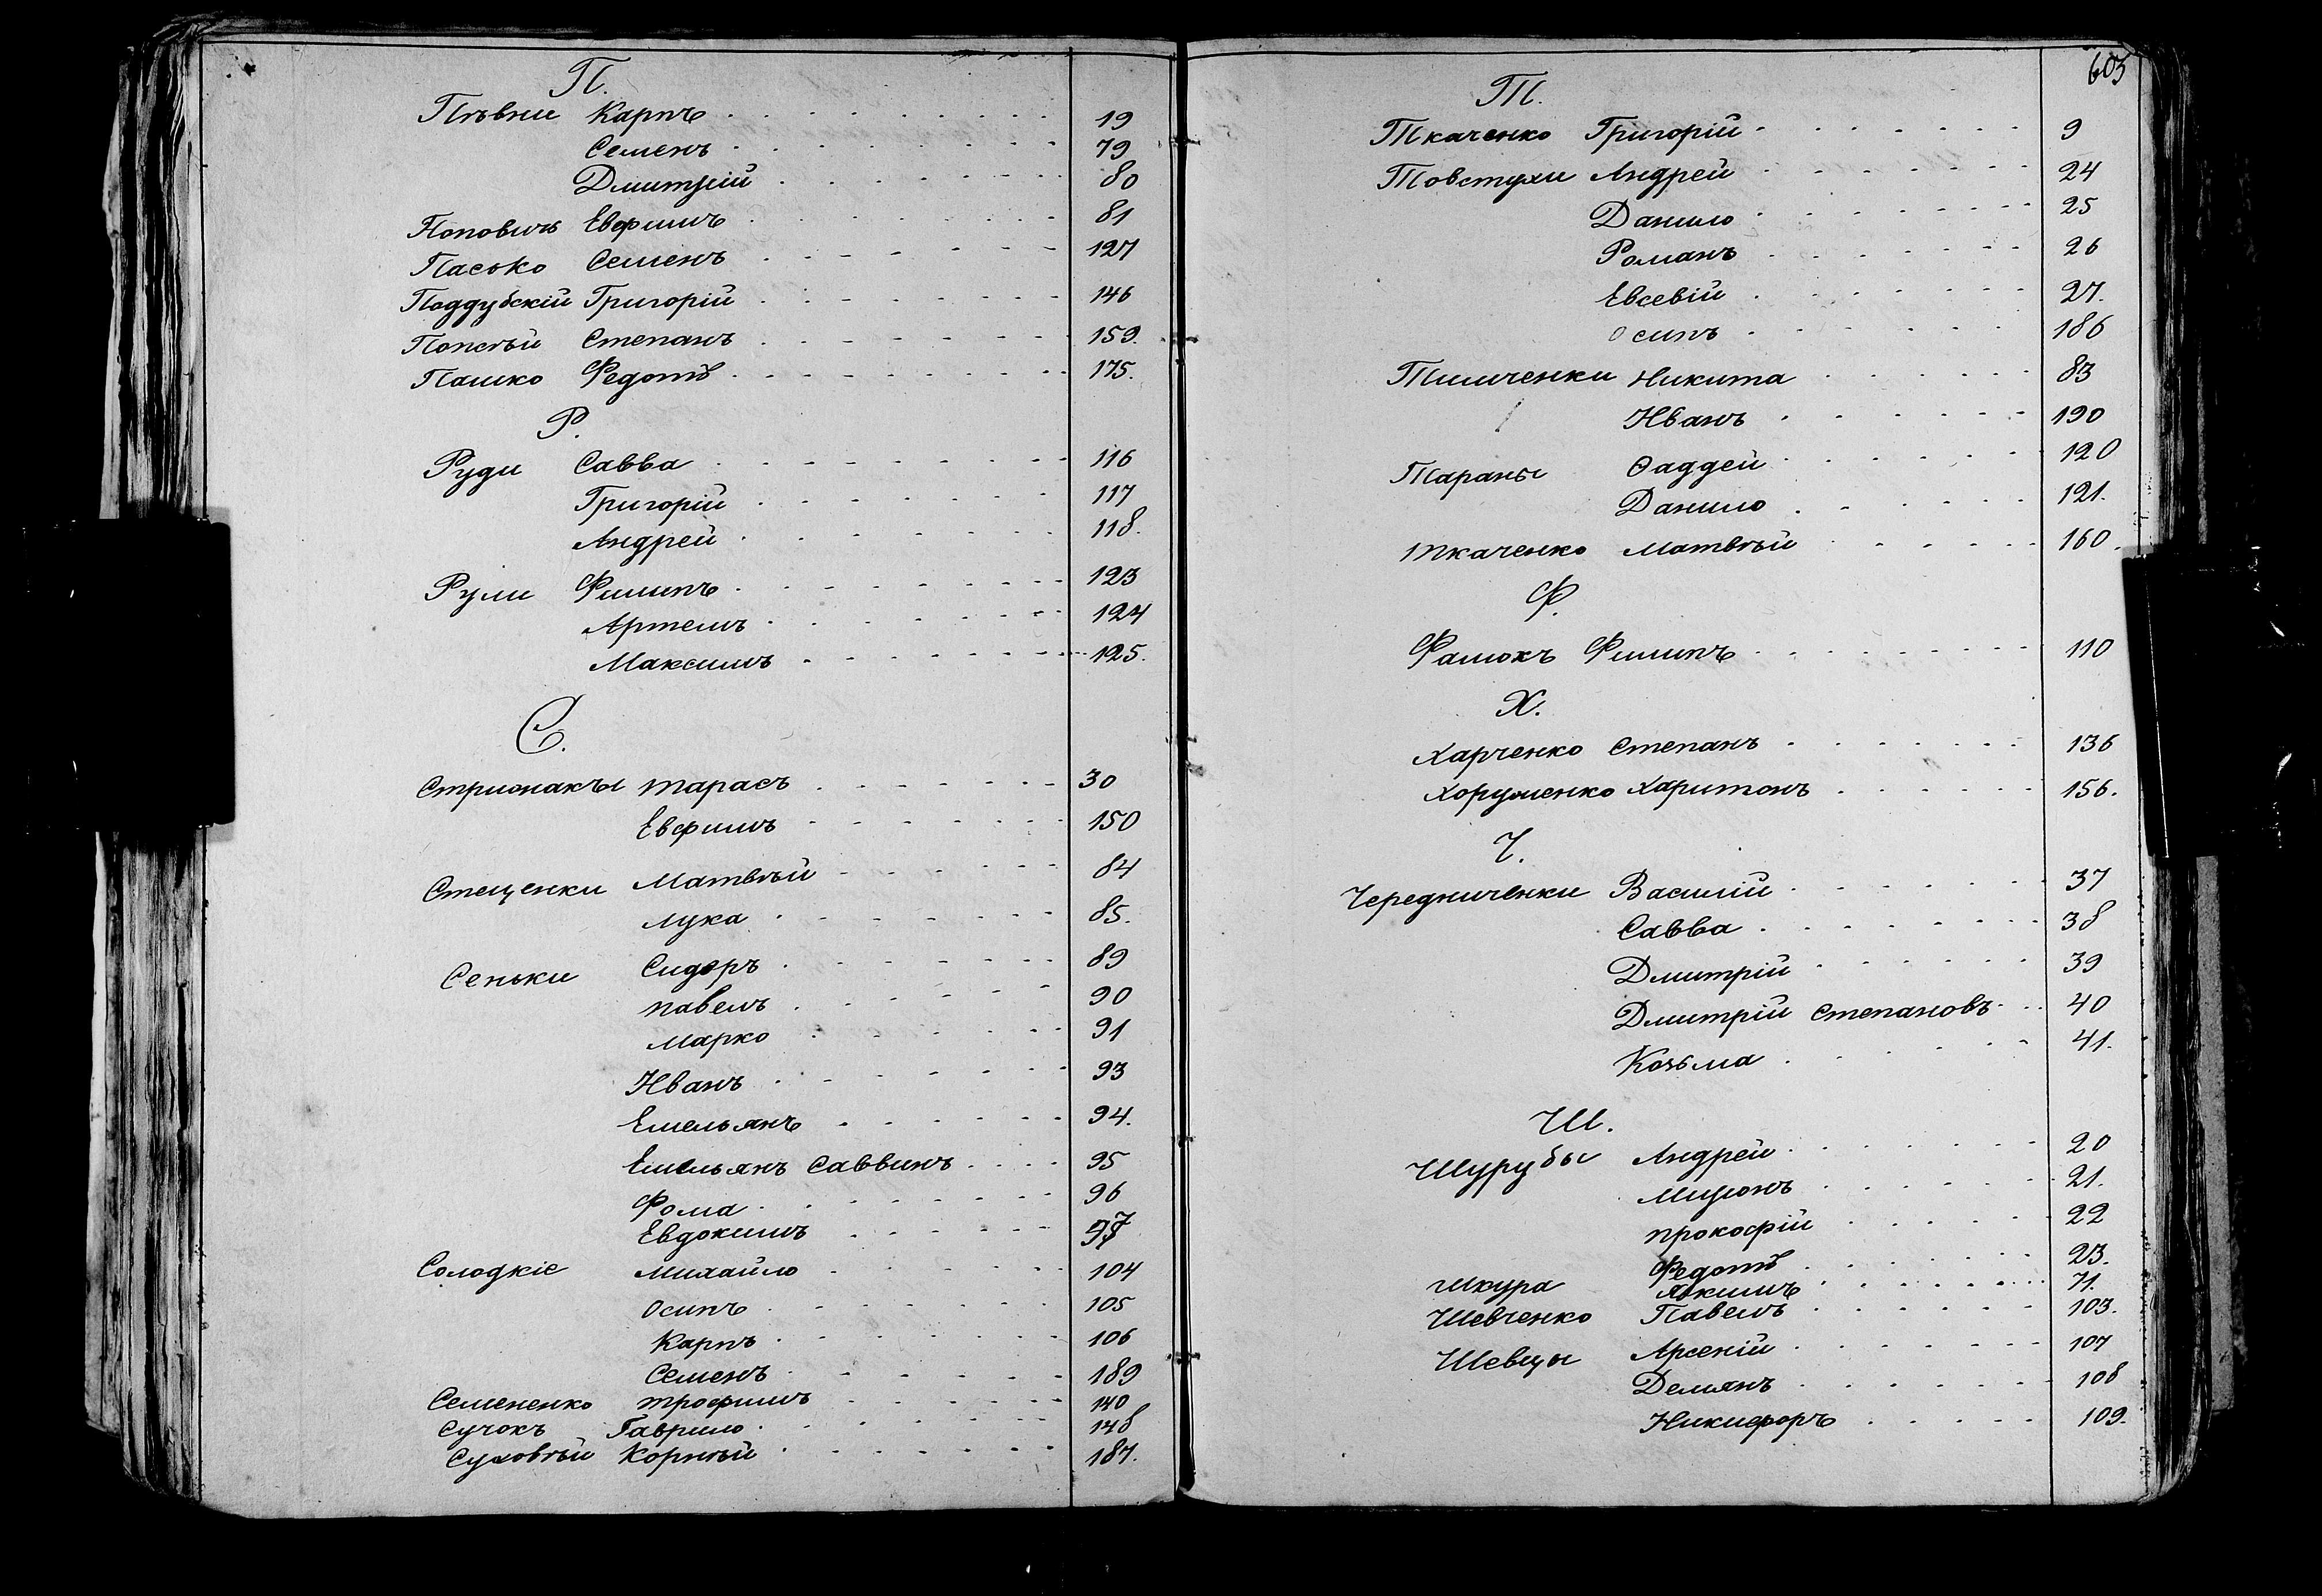 П.
Пѣвни Карпъ 19
Семенъ 79
Дмитрій 80
Поповичъ Евфимъ 81
Пасько Семенъ 127
Поддубскій Григорій 146
Попсѣй Степанъ 159.
Пашко Федотъ 175.
Р.
Руди Савва 116
Григорій 117
Андрей 118.
Рули Филипъ 123
Артемъ 124
Максимъ 125.
С.
Стрионакъы Тарасъ 30
Евфимъ 150
Стеценки Матвѣй 84
Лука 85.
Сеньки Сидоръ 89
Павелъ 90
Марко 91
Иванъ 93
Емельянъ 94.
Емельянъ Саввинъ 95
Фома 96
Евдокимъ 97
Солодкіе Михайло 104
Осипъ 105
Карпъ 106
Семенъ 189
Семененко Трофимъ 140
Сучокъ Гаврило 148
Суховѣй Корнѣй 187.
603
Т.
Ткаченко Григорій 9
Товстухи Андрей 24
Данило 25
Романъ 26
Евсевій 27.
Осипъ 186
Тимченки Никита 83
Иванъ 190
Тараны Фаддей 120
Данило 121.
Ткаченко Матвѣй 160.
Ф.
Фамокъ Филипъ 110
Х.
Харченко Степанъ 136
Хоруженко Харитонъ 156.
Ч.
Чередниченки Василій 37
Савва 38
Дмитрій 39
Дмитрій Степановъ 40
Козьма 41.
Ш.
Шурубы Андрей 20
Миронъ 21.
Прокофій 22
Федотъ 23.
Шкура Якимъ 71.
Шевченко Павелъ 103.
Шевцы Арсеній 107
Демянъ 108
Никифоръ 109.